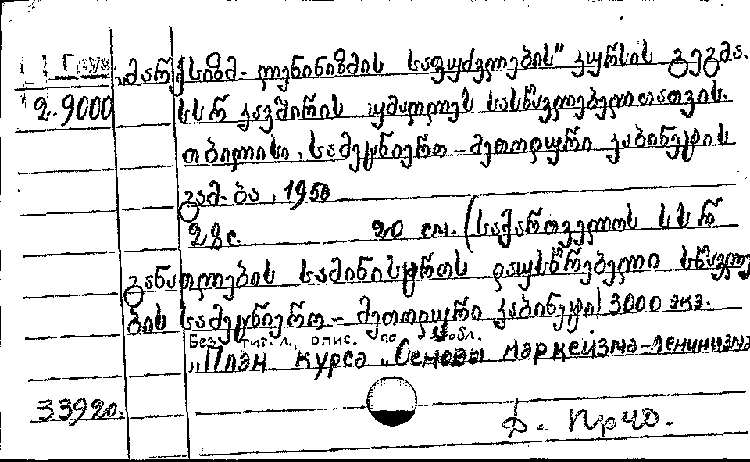 „მარქსიზმ-ლენინიზმის საფუძვლების" კურსის გეგმა.
2.9000 სსრ კავშირის უმაღლეს სასწავლებლთათვის.
თბილისი, სამეცნიერო-მეთოდური კაბინეტის
გამ-ბა, 1950
28 с. 20 см. (საქართველოს სსრ
განათლების სამინისტროს დაუსწრებელი სწავლე
ბის სამეცნიერო-მეთოდური კაბინეტი) 3000 экз.
Без тит. л., опис. по обл.
„План курса „Основы марксизма-ленинизма
33920. Д. ПрЧО.